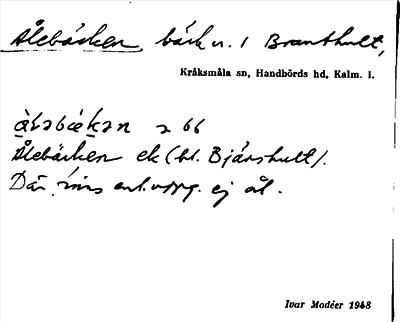 Ålebäcken bäck n. i Branthult,
Kråksmåla sn, Handbörds hd, Kalm. l.
a 66
Ålebäcken ek (bl. Bjärshult).
Där finns enl. uppg. ej ål.
Ivar Modéer 1948